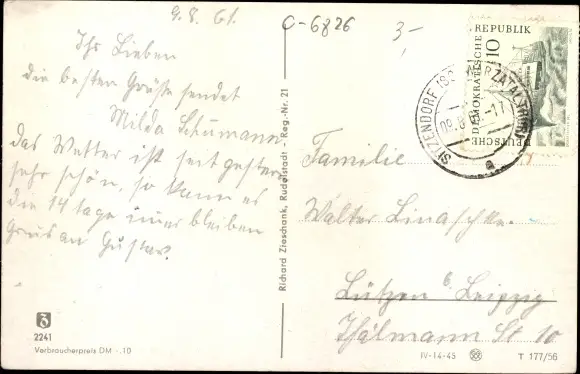 9.8.61.
C-6826
3,-
Ihr Lieben
die besten Grüße sendet
Milda Schumann
das Wetter ist seit gestern
sehr schön, so kann es
die 14 Tage immer bleiben
Gruß an Gustav.
Richard Zieschank, Rudolstadt - Reg.-Nr. 21
DEUTSCHE DEMOKRATISCHE REPUBLIK
10
SITZENDORF (SCHWARZATAL)
09.8.
-17
a
Familie
Walter Linaschke.
Lützen b. Leipzig
Thälmann St 10
2241
Verbraucherpreis DM -.10
IV-14-45
T 177/56